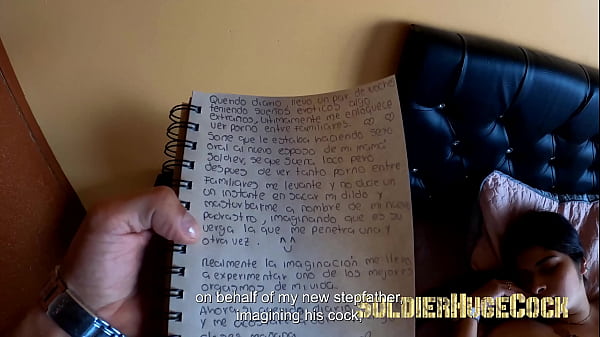 Querido diario, llevo un par de noches
teniendo sueños eroticos algo
extraños, ultimamente me enloquece
ver porno entre familiares.
Soñe que le estaba haciendo sexo
oral al nuevo esposo de mi mamá
Soldier, se que suena loco pero
despues de ver tanto porno entre
familiares me levante y no dude
un instante en sacar mi dildo y
masturbarme a nombre de mi nuevo
padrastro, imaginando que es su
verga la que me penetra una y
otra vez.
Realmente la imaginación me
a experimentar uno de los mejores
orgasmos de mi vida.
on behalf of my new stepfather,
imagining his cock,
SOLDIERHUGECOCK